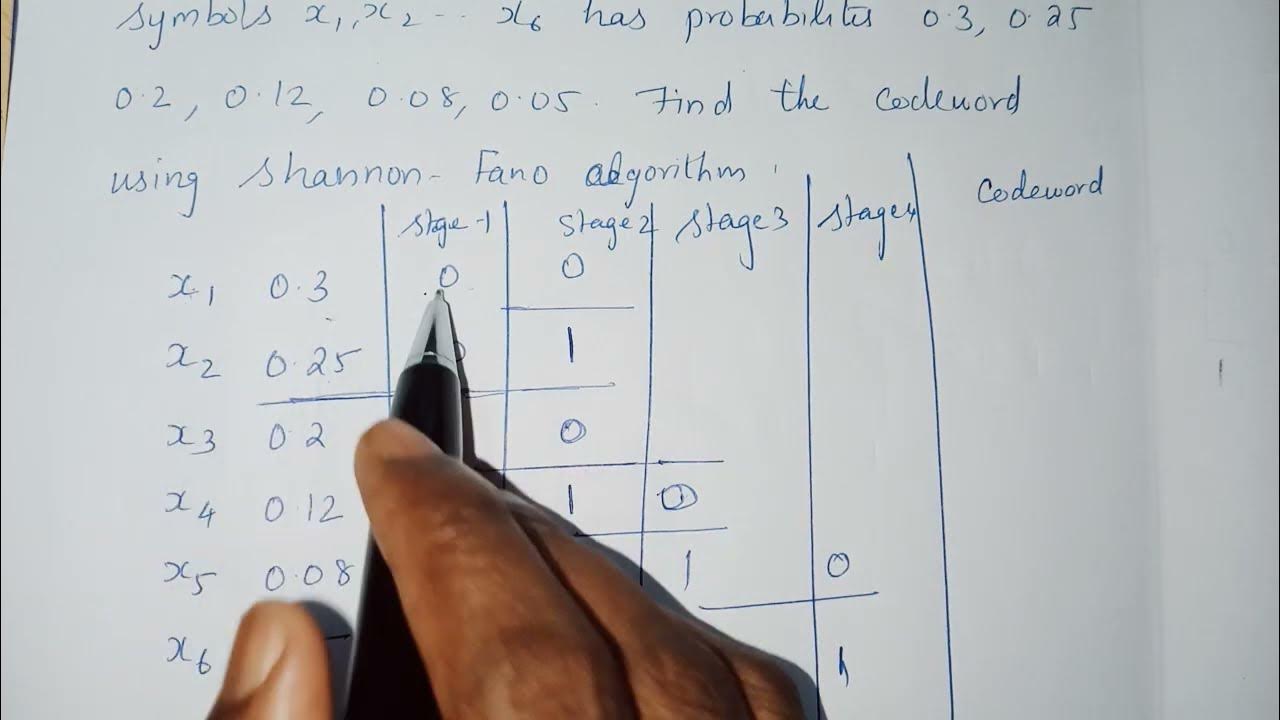 symbols x1, x2 -- x6 has probabilites 0.3, 0.25
0.2, 0.12, 0.08, 0.05. Find the codeword
using shannon-Fano algorithm.
stage-1 stage2 stage3 stage4 Codeword
x1 0.3 0 0
x2 0.25 1
x3 0.2 0
x4 0.12 1 0
x5 0.08 1 0
x6 1